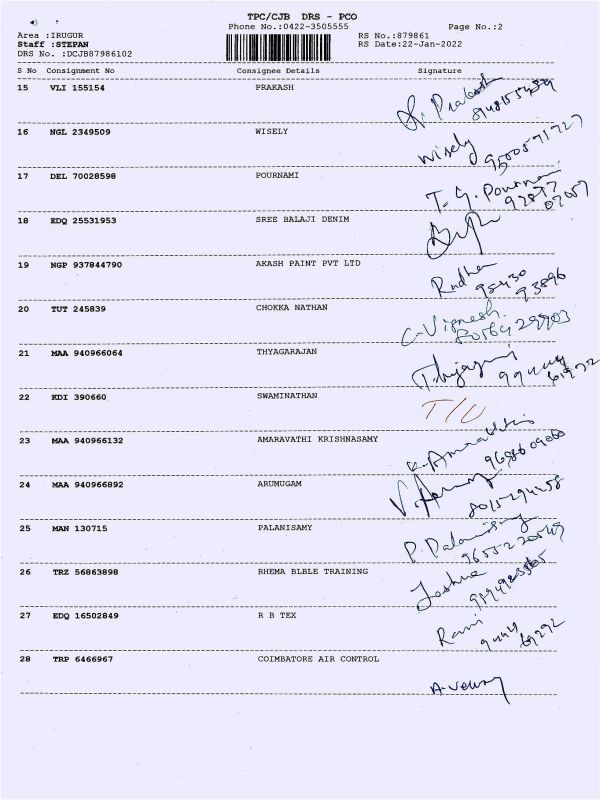 TPC/CJB DRS - PCO
Phone No.:0422-3505555 Page No.:2
Area :IRUGUR RS No.:879861
Staff :STEPAN RS Date:22-Jan-2022
DRS No. :DCJB87986102
S No Consignment No Consignee Details Signature
15 VLI 155154 PRAKASH
Prakash
16 NGL 2349509 WISELY
Wisely
9500591727
17 DEL 70028598 POURNAMI
T. G. Pournami
92877 07057
18 EDQ 25531953 SREE BALAJI DENIM
19 NGP 937844790 AKASH PAINT PVT LTD
Radha
95430 93896
20 TUT 245839 CHOKKA NATHAN
C. Vignesh
80564 29903
21 MAA 940966064 THYAGARAJAN
22 KDI 390660 SWAMINATHAN
T/U
23 MAA 940966132 AMARAVATHI KRISHNASAMY
24 MAA 940966892 ARUMUGAM
25 MAN 130715 PALANISAMY
P. Palanisamy
26 TRZ 56863898 RHEMA BLBLE TRAINING
Joshua
27 EDQ 16502849 R B TEX
Rani
9444 69292
28 TRP 6466967 COIMBATORE AIR CONTROL